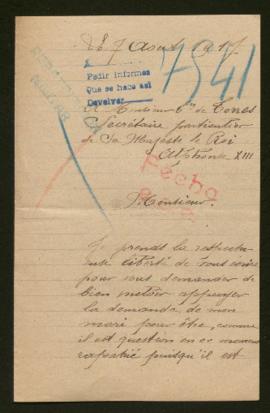 28 7 Août 1917
7541
Pedir informes
Que se hace así
Devolver
A Monsieur de Torres
Secrétaire particulier
de Sa Majesté le Roi
Alphonse XIII
Fecha
Monsieur
Je prends la
liberté de vous écrire
pour vous demander de
bien vouloir appuyer
la demande de mon
mari pour être, comme
il est question en ce moment
rapatrié puisqu'il est